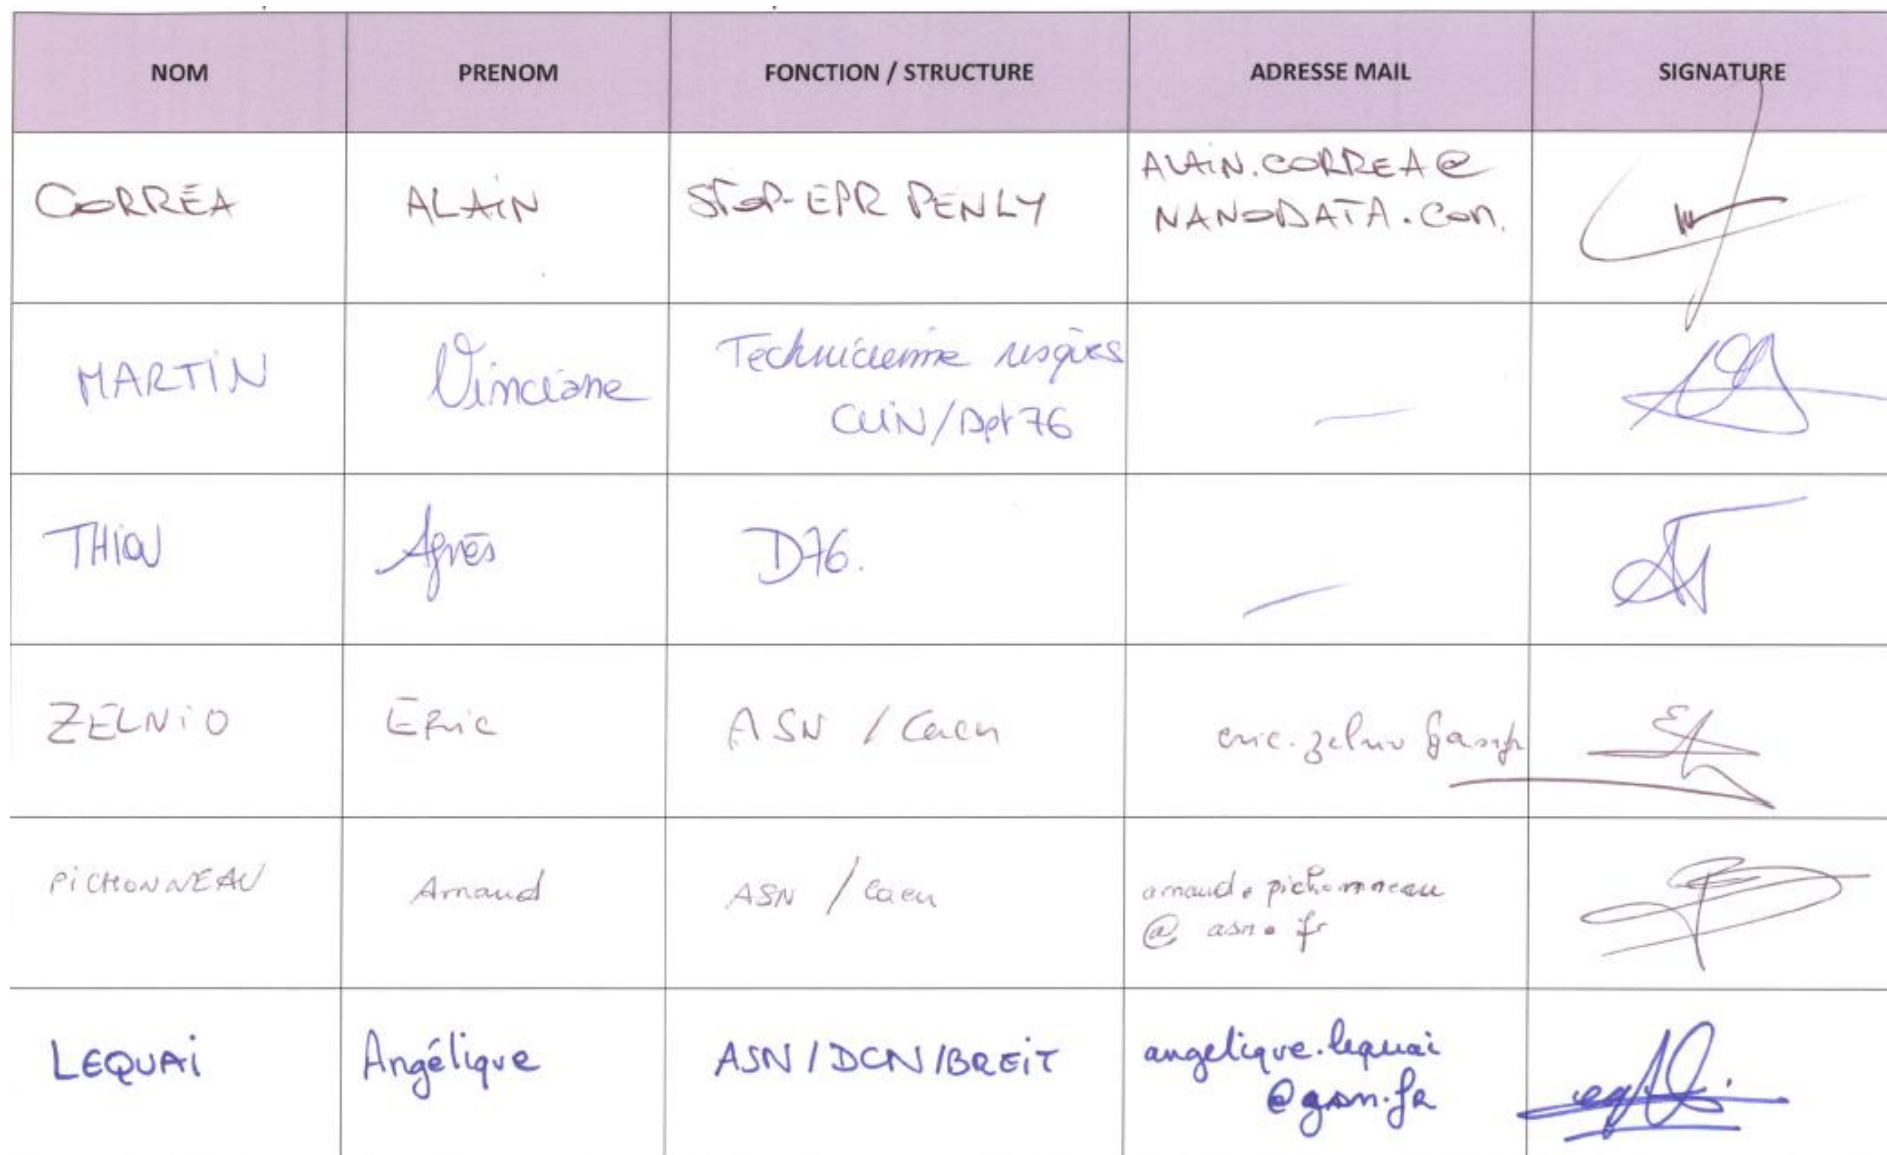 NOM PRENOM FONCTION / STRUCTURE ADRESSE MAIL SIGNATURE
CORREA ALAIN STOP-EPR PENLY ALAIN.CORREA@
NANODATA.COM.
MARTIN Vinciane Technicienne risques
CLIN/Dpt 76
THION Agnès D76.
ZELNIO Eric ASN / Caen eric.zelnio
PICHONNEAU Arnaud ASN / Caen arnaud.pichonneau
@ asn.fr
LEQUAI Angélique ASN/DCN/BREIT angelique.lequai